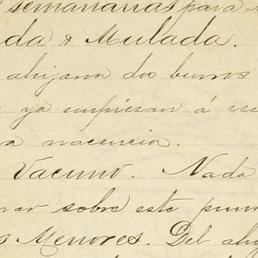 semanarias para
da & Mulada.
ahijana dos burros
ya empiesan á
a nacencia.
Vacuno. Nada
nar sobre este pun
s Menores. Del ahi